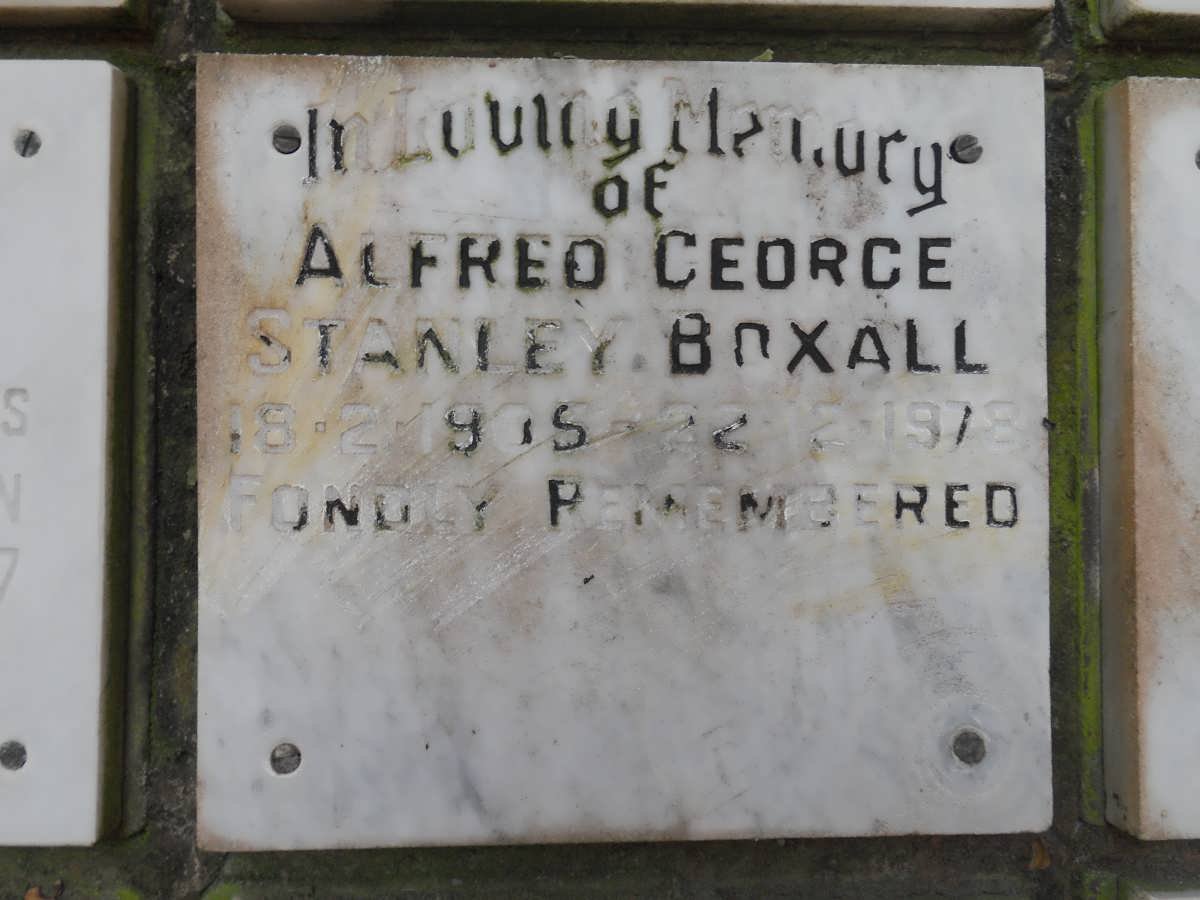 In Loving Memory
of
ALFRED GEORGE
STANLEY BOXALL
18·2·1905-22·12·1978
FONDLY REMEMBERED
S
N
7